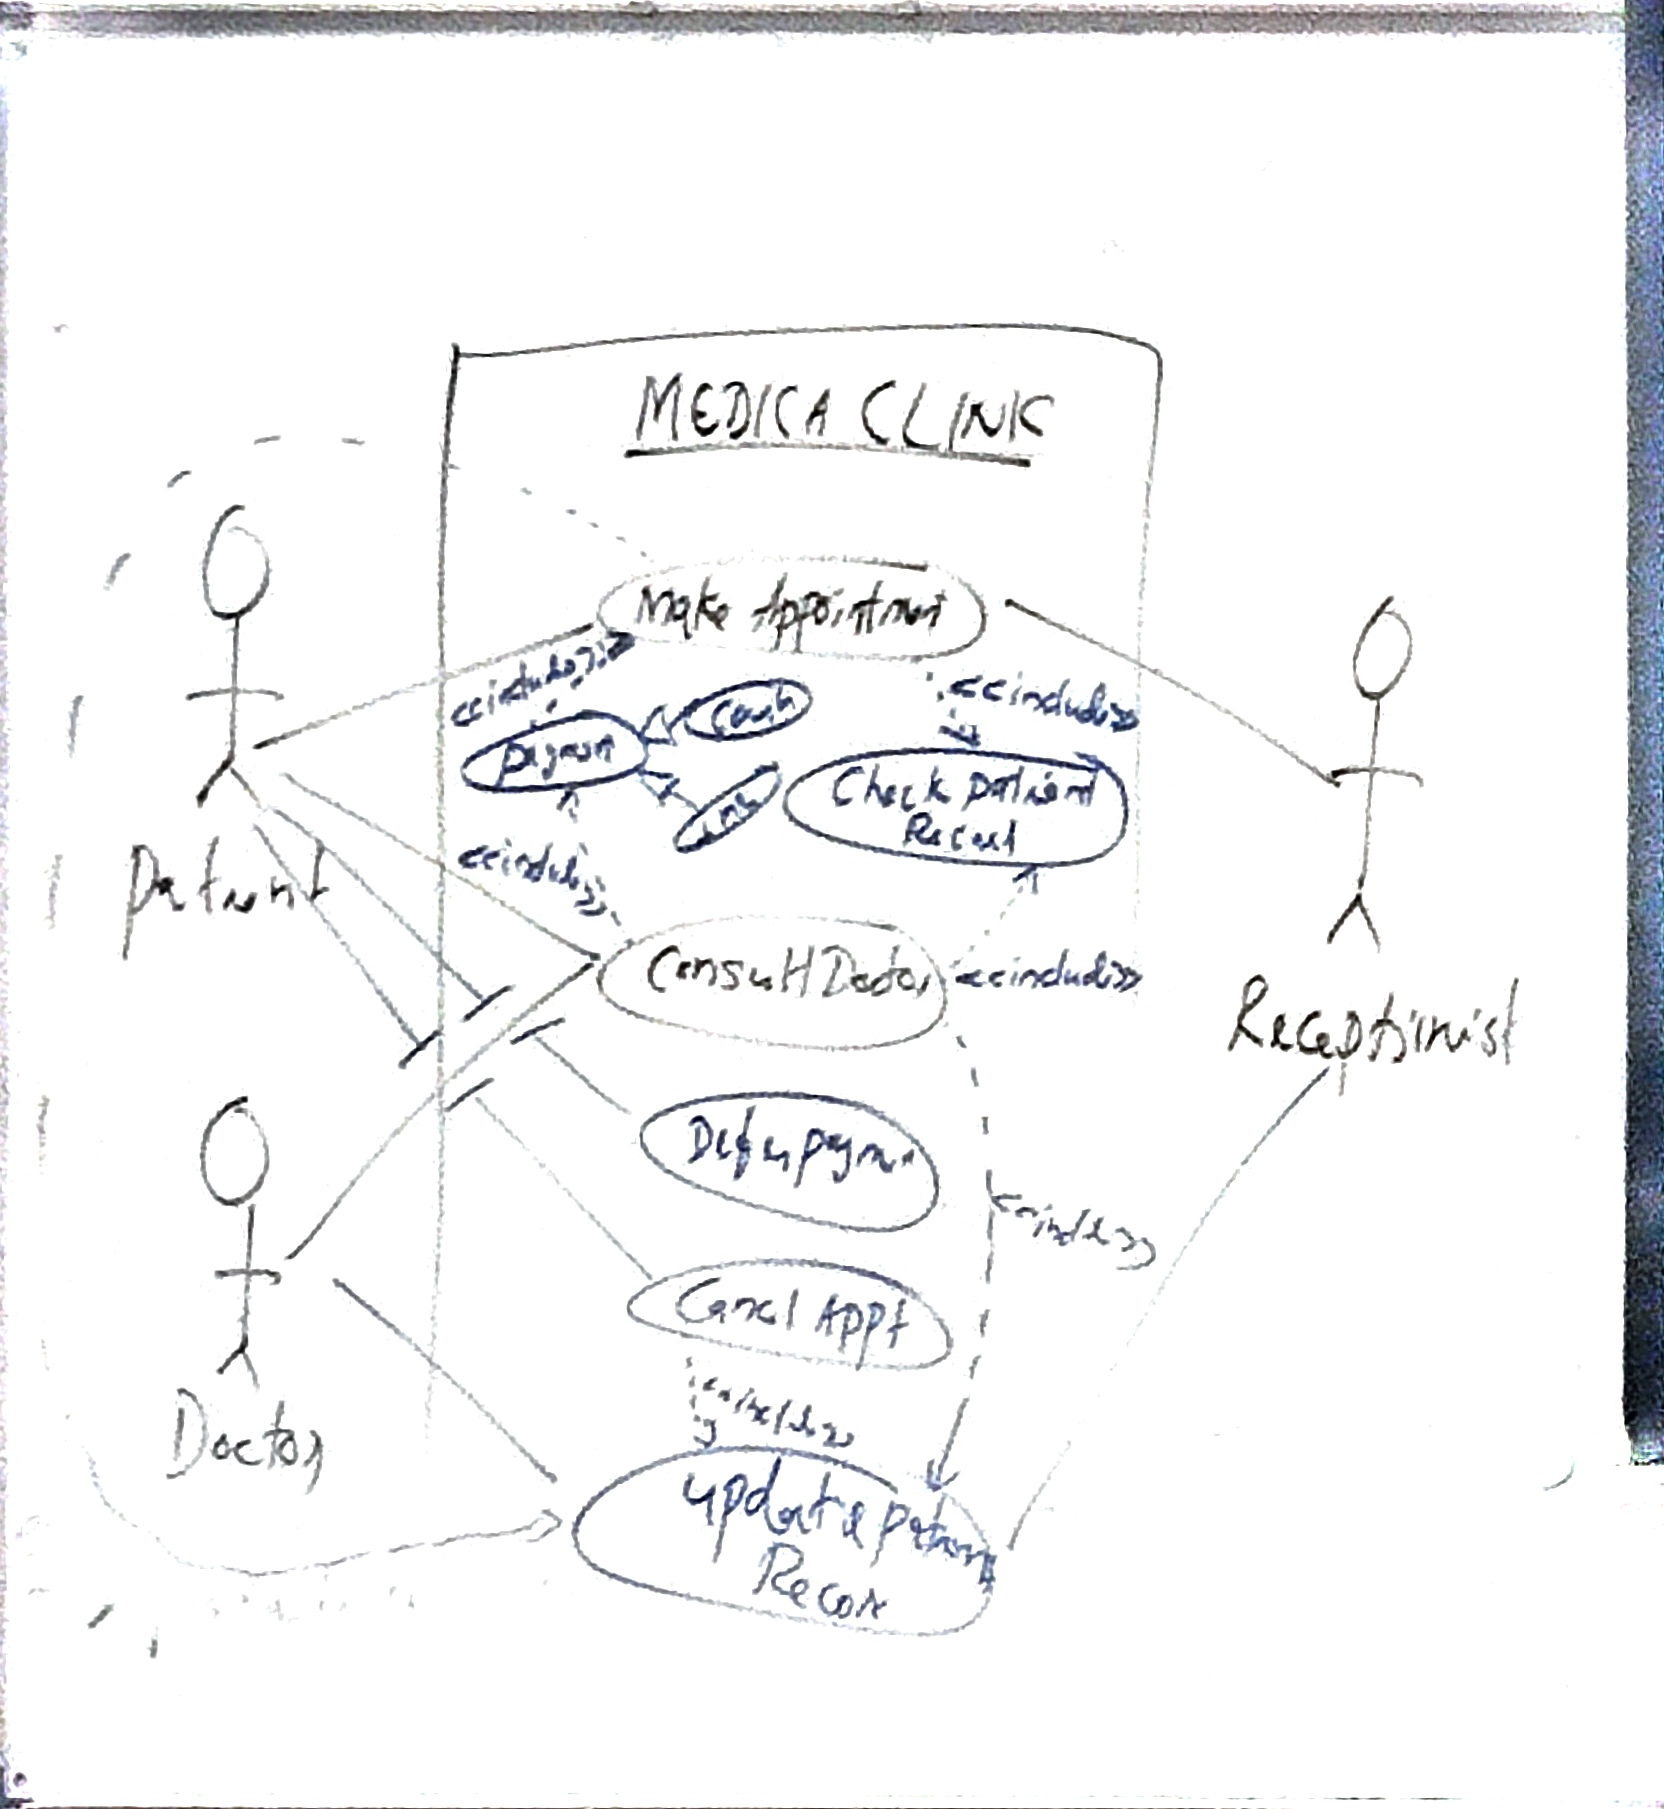 MEDICA CLINIC
Make Appointment
<<include>>
Cash
<<include>>
payment
Check patient
Record
<<include>>
Patient
Consult Doctor
<<include>>
Receptionist
Defer payment
<<include>>
Cancel APPt
Doctor
<<include>>
update patient
Record